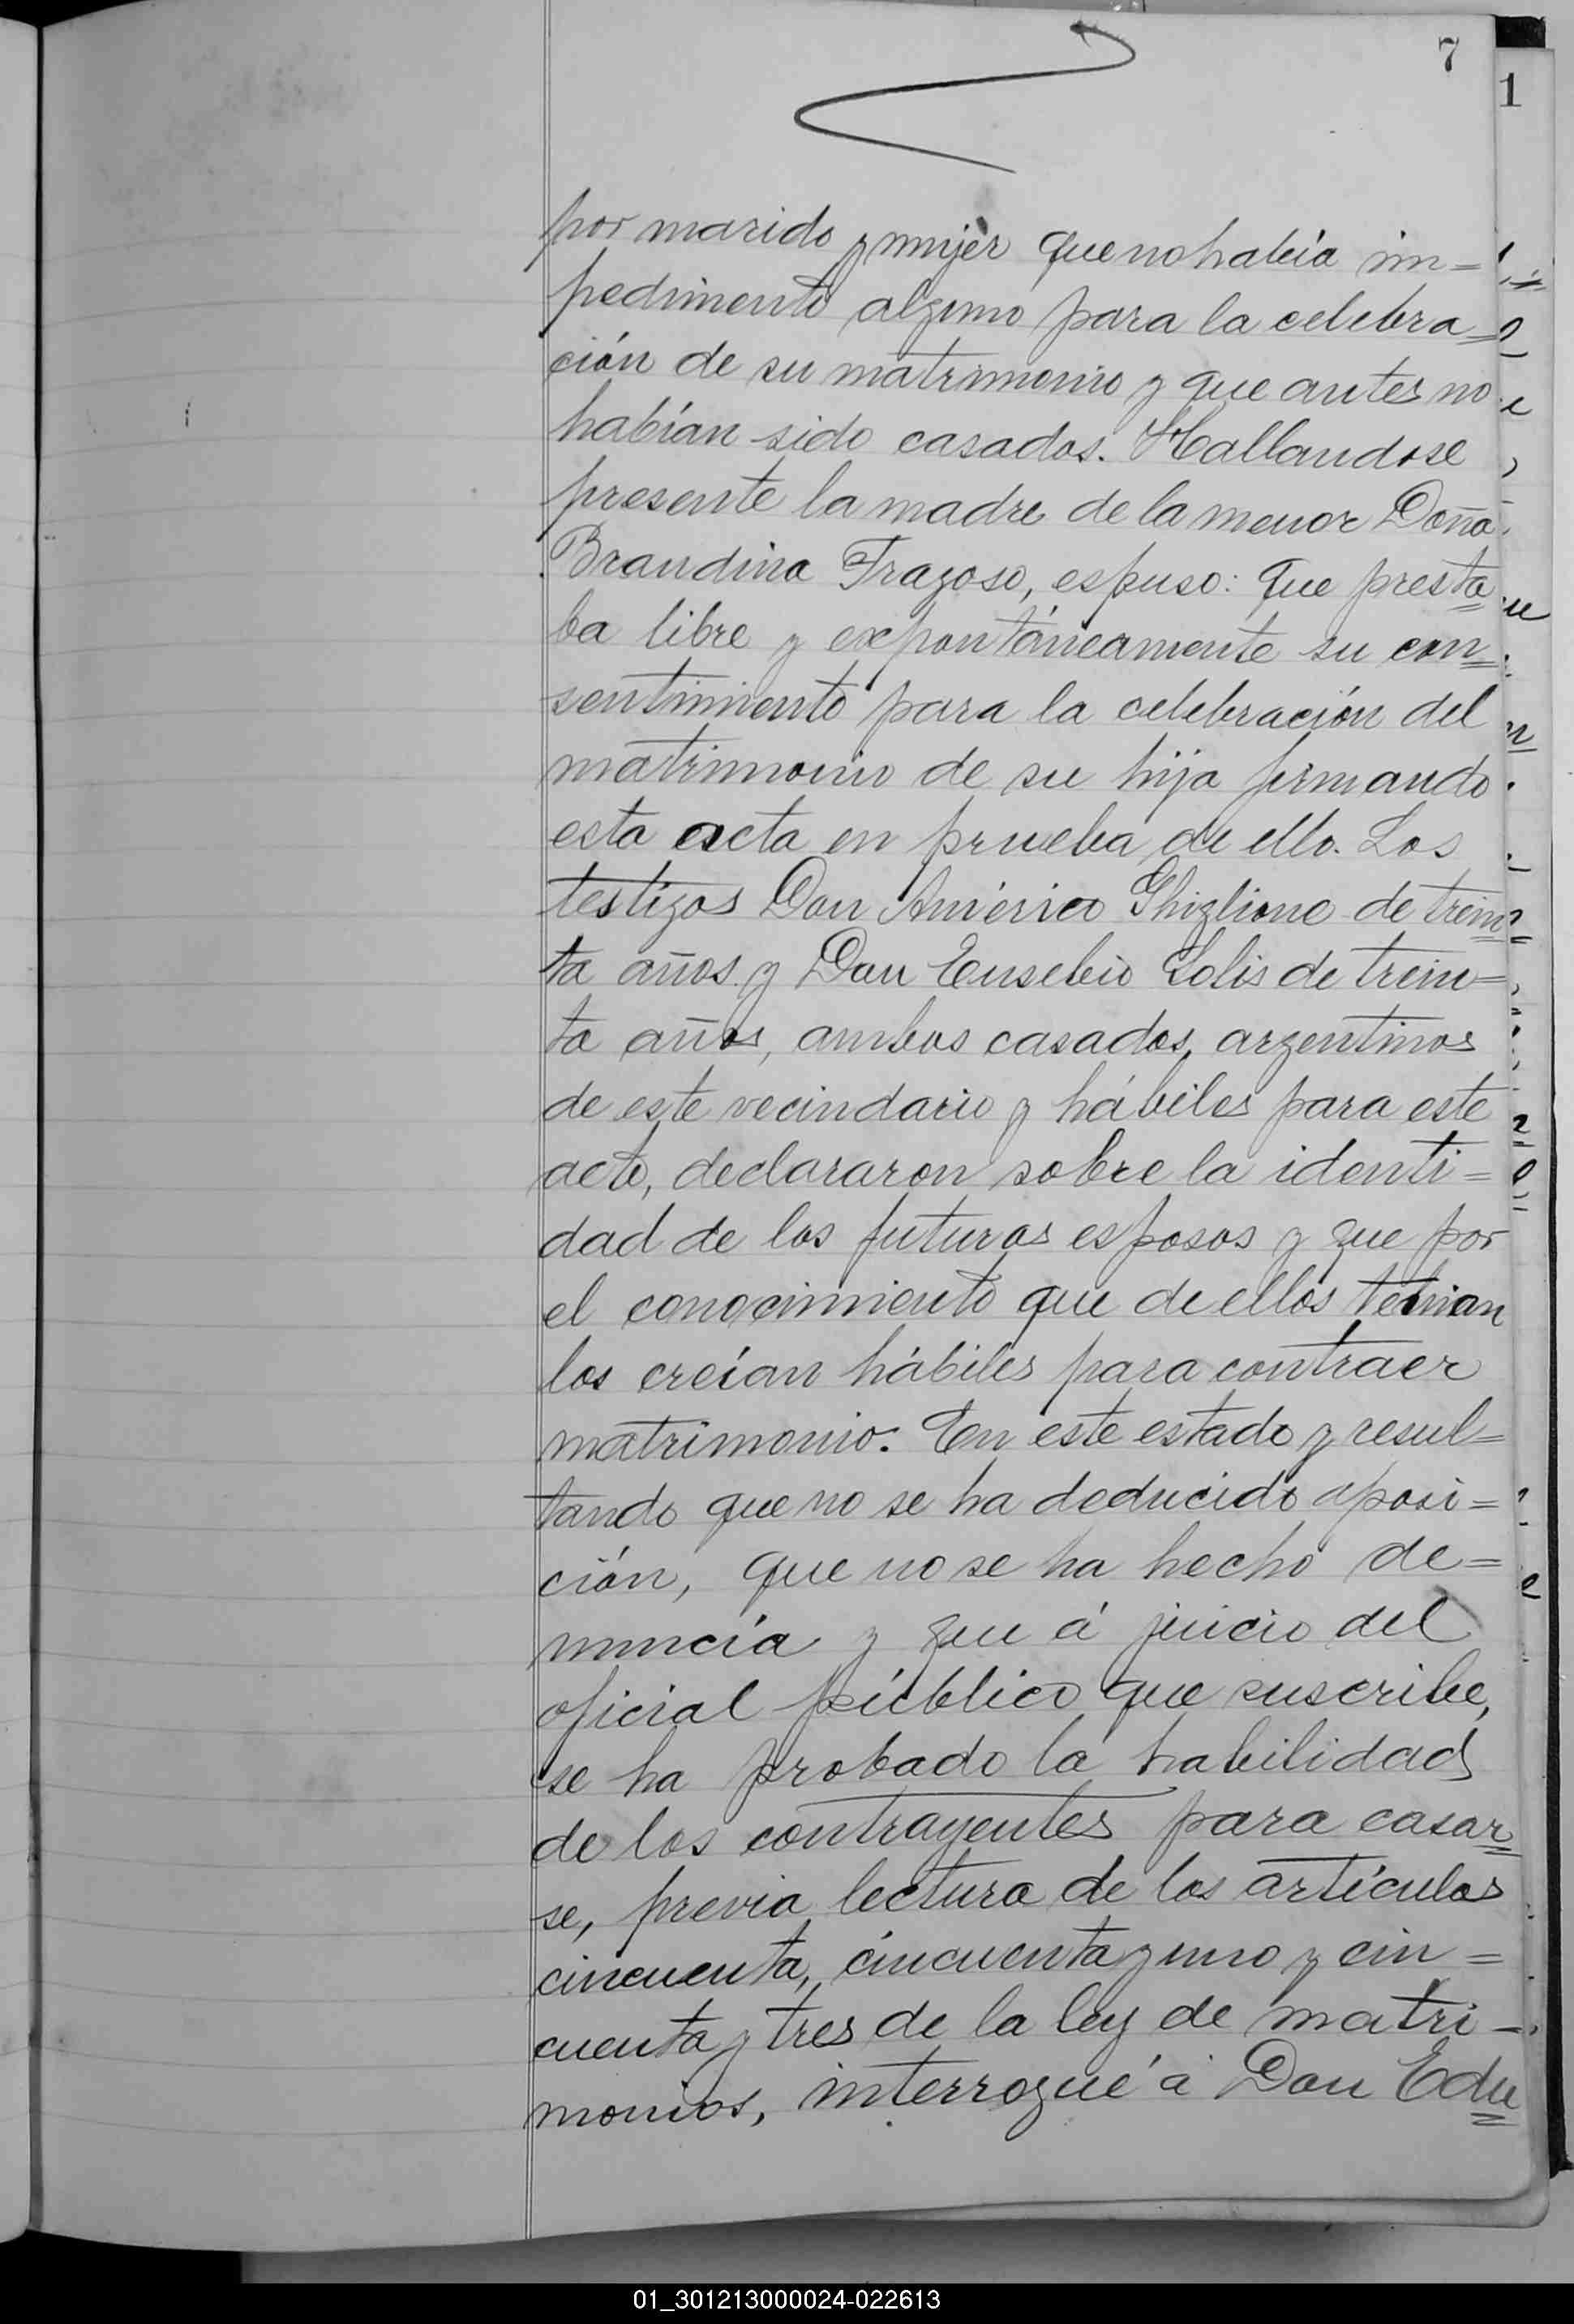 7
1
por marido y mujer que no había im=
pedimento alguno para la celebra=
ción de su matrimonio y que antes no
habían sido casados. Hallandose
presente la madre de la menor Doña
Brandina Fragoso, espuso: que presta
ba libre y expontáneamente su con=
sentimiento para la celebración del
matrimonio de su hija firmando
esta acta en prueba de ello. Los
testigos Don Américo Ghiglione de trein=
ta años y Don Eusebio Solis de trein=
ta años, ambos casados, argentinos
de este vecindario y hábiles para este
acto, declararon sobre la identi=
dad de los futuros esposos y que por
el conocimiento que de ellos tenian
los creían hábiles para contraer
matrimonio. En este estado y resul=
tando que no se ha deducido oposi=
ción, que no se ha hecho de=
nuncía y que á juicio del
oficial público que suscribe,
se ha probado la habilidad
de los contrayentes para casar=
se, previa lectura de los artículos
cincuenta, cincuenta y uno y cin=
cuenta y tres de la ley de matri-
monios, interrogué á Don Edu=
01_301213000024-022613